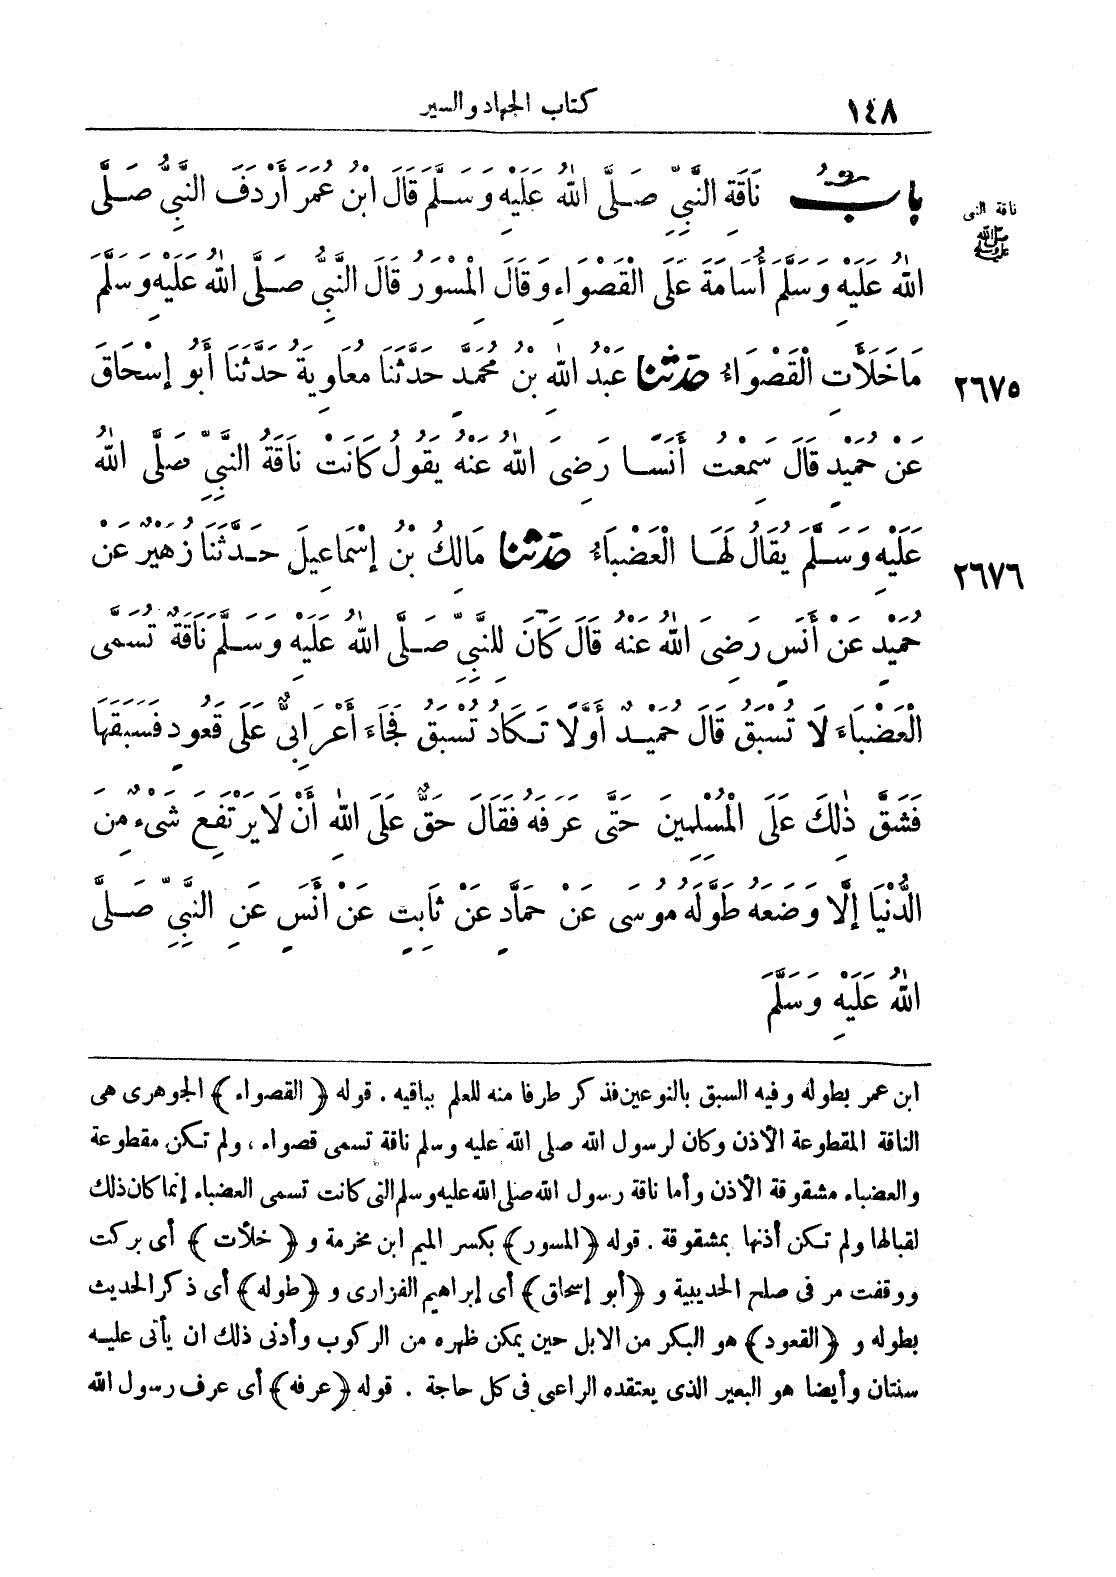 ١٤٨
كتاب الجهاد والسير
ناقة النبي
ﷺ
بابُ نَاقَةِ النَّبِيِّ صَلَّى اللهُ عَلَيْهِ وَسَلَّمَ قَالَ ابْنُ عُمَرَ أَرْدَفَ النَّبِيُّ صَلَّى
اللهُ عَلَيْهِ وَسَلَّمَ أُسَامَةَ عَلَى الْقَصْوَاءِ وَقَالَ الْمِسْوَرُ قَالَ النَّبِيُّ صَلَّى اللهُ عَلَيْهِ وَسَلَّمَ
٢٦٧٥
مَا خَلَأَتِ الْقَصْوَاءُ حَدَّثَنَا عَبْدُ اللهِ بْنُ مُحَمَّدٍ حَدَّثَنَا مُعَاوِيَةُ حَدَّثَنَا أَبُو إِسْحَاقَ
عَنْ حُمَيْدٍ قَالَ سَمِعْتُ أَنَسًا رَضِيَ اللهُ عَنْهُ يَقُولُ كَانَتْ نَاقَةُ النَّبِيِّ صَلَّى اللهُ
عَلَيْهِ وَسَلَّمَ يُقَالُ لَهَا الْعَضْبَاءُ حَدَّثَنَا مَالِكُ بْنُ إِسْمَاعِيلَ حَدَّثَنَا زُهَيْرٌ عَنْ
٢٦٧٦
حُمَيْدٍ عَنْ أَنَسٍ رَضِيَ اللهُ عَنْهُ قَالَ كَانَ لِلنَّبِيِّ صَلَّى اللهُ عَلَيْهِ وَسَلَّمَ نَاقَةٌ تُسَمَّى
الْعَضْبَاءَ لَا تُسْبَقُ قَالَ حُمَيْدٌ أَوْ لَا تَكَادُ تُسْبَقُ فَجَاءَ أَعْرَابِيٌّ عَلَى قَعُودٍ فَسَبَقَهَا
فَشَقَّ ذٰلِكَ عَلَى الْمُسْلِمِينَ حَتَّى عَرَفَهُ فَقَالَ حَقٌّ عَلَى اللهِ أَنْ لَا يَرْتَفِعَ شَيْءٌ مِنَ
الدُّنْيَا إِلَّا وَضَعَهُ طَوَّلَهُ مُوسَى عَنْ حَمَّادٍ عَنْ ثَابِتٍ عَنْ أَنَسٍ عَنِ النَّبِيِّ صَلَّى
اللهُ عَلَيْهِ وَسَلَّمَ
ابن عمر بطوله وفيه السبق بالنوعين فذكر طرفا منه للعلم بباقيه . قوله ﴿القصواء﴾ الجوهرى هى
الناقة المقطوعة الأذن وكان لرسول الله صلى الله عليه وسلم ناقة تسمى قصواء ، ولم تكن مقطوعة
والعضباء مشقوقة الأذن وأما ناقة رسول الله صلى الله عليه وسلم التى كانت تسمى العضباء إنما كان ذلك
لقبالها ولم تكن أذنها بمشقوقة . قوله ﴿المسور﴾ بكسر الميم ابن مخرمة و ﴿خلأت﴾ أى بركت
ووقفت مر فى صلح الحديبية و ﴿أبو إسحاق﴾ أى إبراهيم الفزارى و ﴿طوله﴾ أى ذكر الحديث
بطوله و ﴿القعود﴾ هو البكر من الابل حين يمكن ظهره من الركوب وأدنى ذلك ان يأتى عليه
سنتان وأيضا هو البعير الذى يعتقده الراعى فى كل حاجة . قوله ﴿عرفه﴾ أى عرف رسول الله